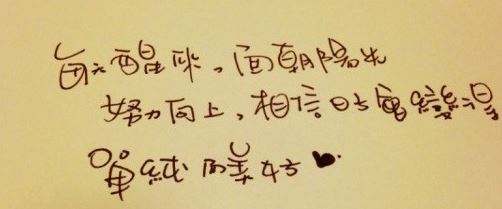 每天醒來,面朝陽光
努力向上,相信日子會變得
單純而美好